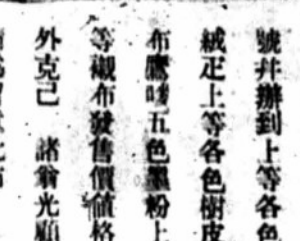 號幷辦到上等各色
絨疋上等各色樹皮
布鷹 五色墨粉上
等襯布發售價値格
外克己 諸翁光顧